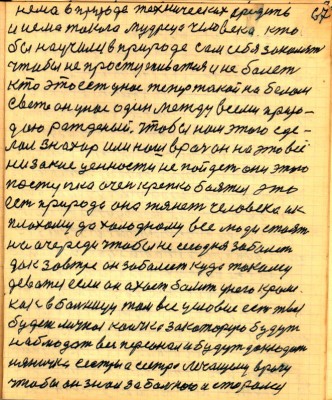 нема в природе технических средств 67
и нема такого мудреца человека. кто
бы научил в природе сам себя закалять
чтобы не простуживатся и не болеть
кто это есть у нас теперь такой на белом
свете он у нас один между всеми приро-
дою рожденый, чтобы нам этого сде-
лал знахар или наш врач он на это всё
ни за какие ценности не пойдет они этого
поступка очен крепко боятся это
ест природа она тянет человека к
плохому до холодному все люди стоят
на очереди чтобы не сегодня заболет
дак завтра он заболеет куда такому
деватся если он ахает болит у него кроме.
как в больницу там все условие ест твоя
будет личная койка за которую будут
наблюдат вес персонал и будут докладат
нянячка сестры а сестра лечащему врачу
чтобы он знал за больного и старался